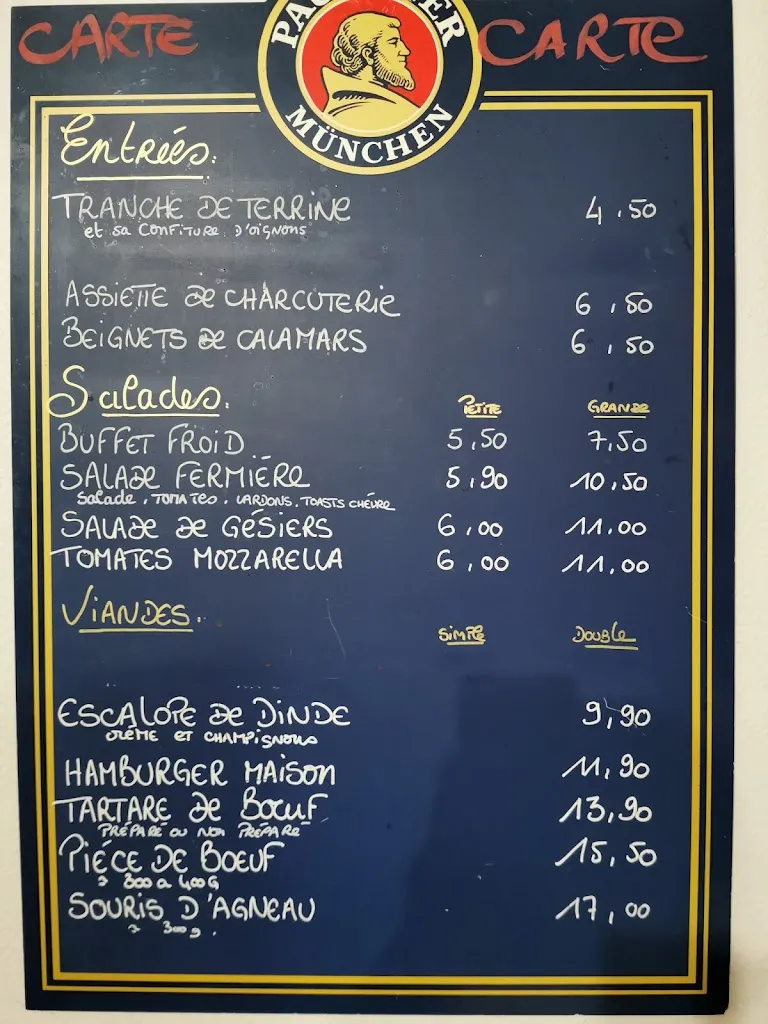 CARTE
CARTE
MÜNCHEN
Entrées.
TRANCHE DE TERRINE 4,50
et sa CONFITURE D'OIGNONS
ASSIETTE de CHARCUTERIE 6,50
BEIGNETS de CALAMARS 6,50
Salades. PETITE GRANDE
BUFFET FROID 5,50 7,50
SALADE FERMIÈRE 5,90 10,50
Salade, TOMATES, LARDONS, TOASTS CHÈVRE
SALADE DE GÉSIERS 6,00 11.00
TOMATES MOZZARELLA 6,00 11,00
VIANDES. SIMPLE DOUBLE
ESCALOPE de DINDE 9,90
CRÈME ET CHAMPIGNONS
HAMBURGER MAISON 11,90
TARTARE de BOEUF 13,90
PRÉPARÉ OU NON PRÉPARÉ
PIÉCE DE BOEUF 15,50
300 a 400G
SOURIS D'AGNEAU 17,00
300g.